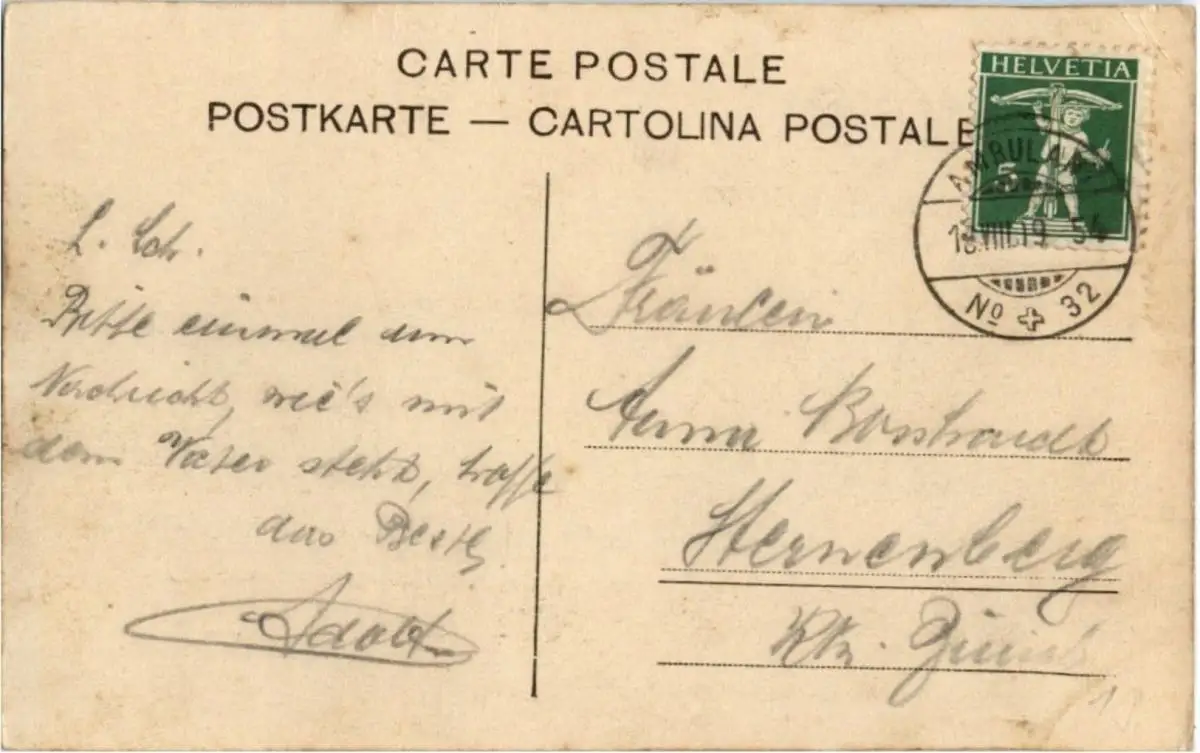 CARTE POSTALE
POSTKARTE — CARTOLINA POSTALE
HELVETIA
5
AMBULANT
VIII.19
No 32
L. Sch.
Bitte einmal um
Nachricht, wie's mit
dem Vater steht, hoffe
das Beste
Adolf
Fräulein
Anna Bosshardt
Sternenberg
Kt. Zürich